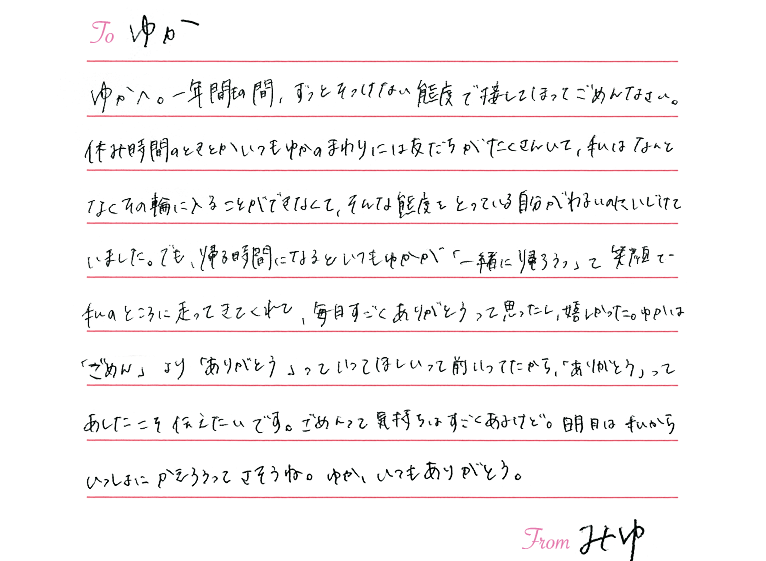 To ゆかへ
ゆかへ。一年間もの間、ずっとそっけない態度で接してしまってごめんなさい。
休み時間のときとかいつもゆかのまわりには友だちがたくさんいて、私はなんと
なくその輪に入ることができなくて、そんな態度をとっている自分がわるいのにいじけて
いました。でも、帰る時間になるといつもゆかが「一緒に帰ろうっ」て笑顔で
私のところに走ってきてくれて、毎日すごくありがとうって思ったし、嬉しかった。ゆかは
「ごめん」より「ありがとう」っていってほしいって前いってたから、「ありがとう」って
あしたこそ伝えたいです。ごめんって気持ちはすごくあるけど。明日は私から
いっしょにかえろうってさそうね。ゆか、いつもありがとう。
From みゆ